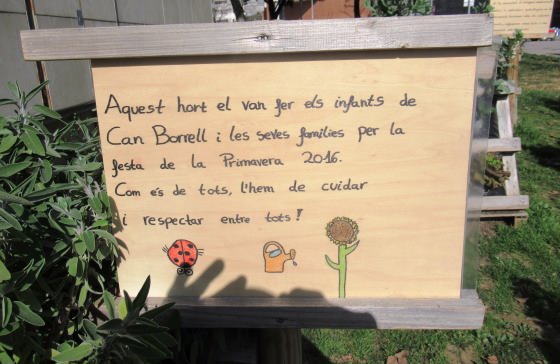 Aquest hort el van fer els infants de
Can Borrell i les seves famílies per la
festa de la Primavera 2016.
Com és de tots, l'hem de cuidar
i respectar entre tots!